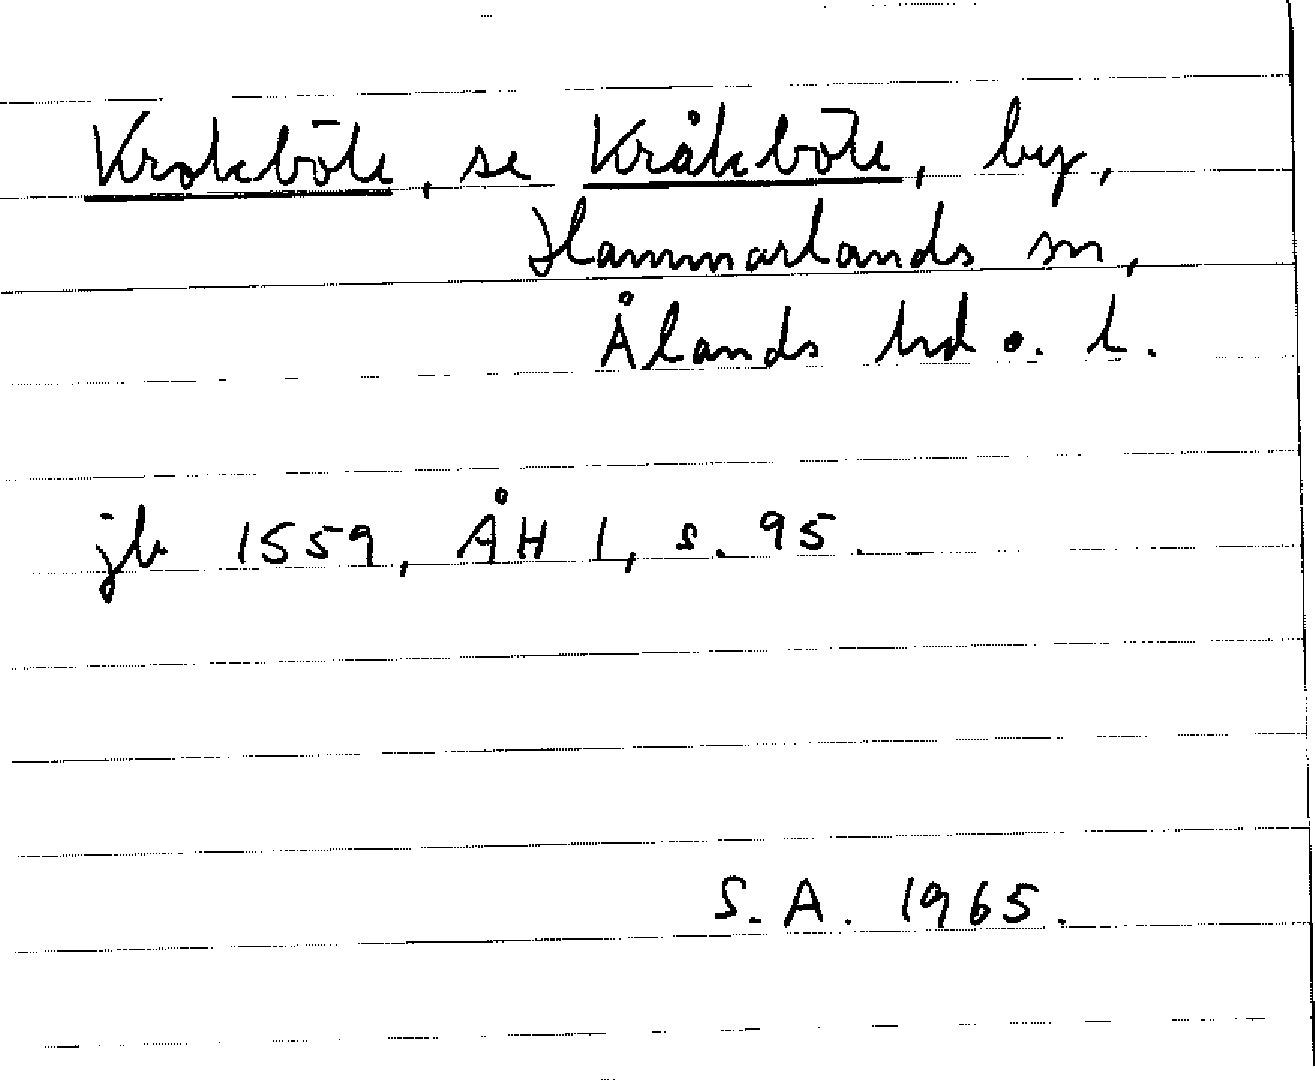 Krokböle, se Kråkböle, by,
Hammarlands sn,
Ålands hd o. l.
jb 1559, ÅH I, s. 95.
S. A. 1965.